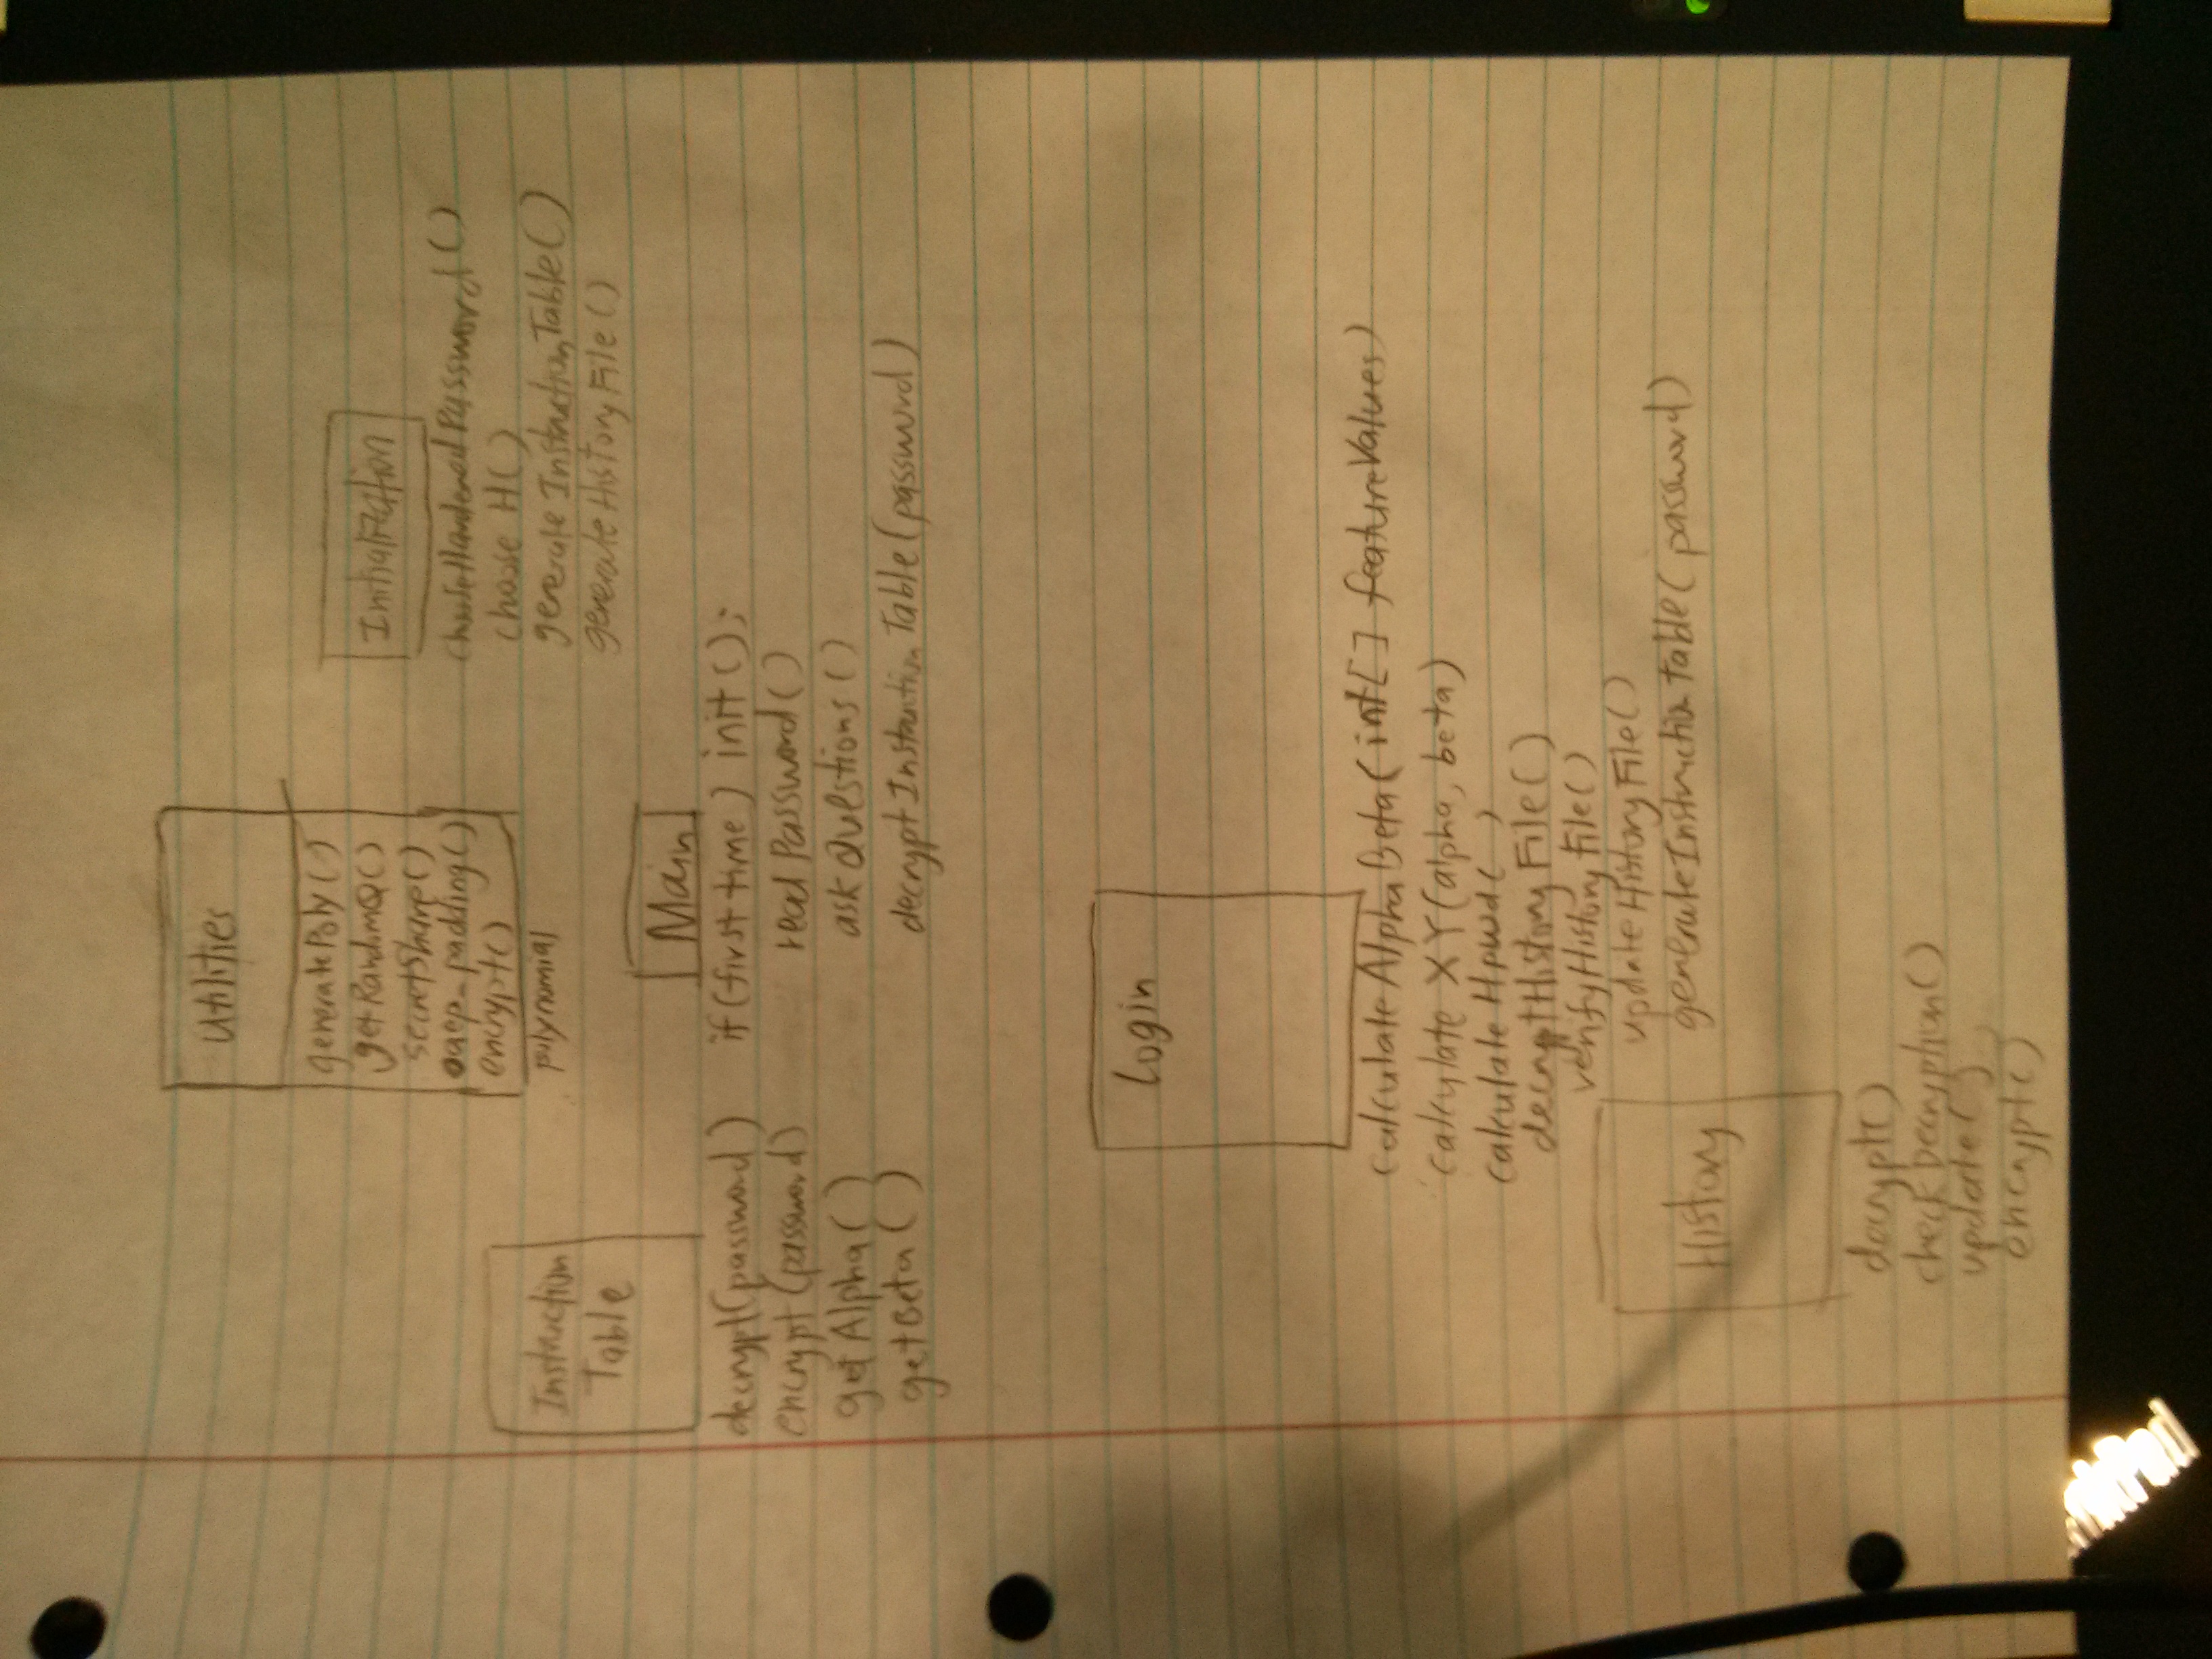 Utilities
generatePoly()
getRandomQ()
secretShare()
oaep_padding()
encrypt()
polynomial
Initialization
chooseHardenedPassword()
choose H()
generate InstructionTable()
generateHistoryFile()
Instruction
Table
decrypt(password)
encrypt(password)
getAlpha()
getBeta()
Main
if(first time) init();
read Password()
ask Questions()
decrypt Instruction Table(password)
Login
calculateAlphaBeta(int[] featureValues)
calculate XY(alpha, beta)
calculateHpwd( )
decryptHistoryFile()
verifyHistoryFile()
updateHistoryFile()
generateInstructionTable(password)
History
decrypt()
checkDecryption()
update()
encrypt()